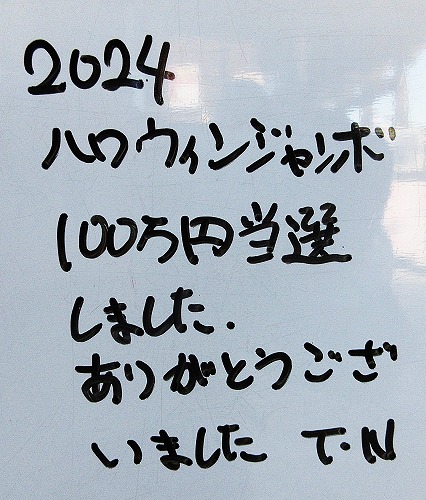 2024
ハロウィンジャンボ
100万円当選
しました.
ありがとうござ
いました T.N